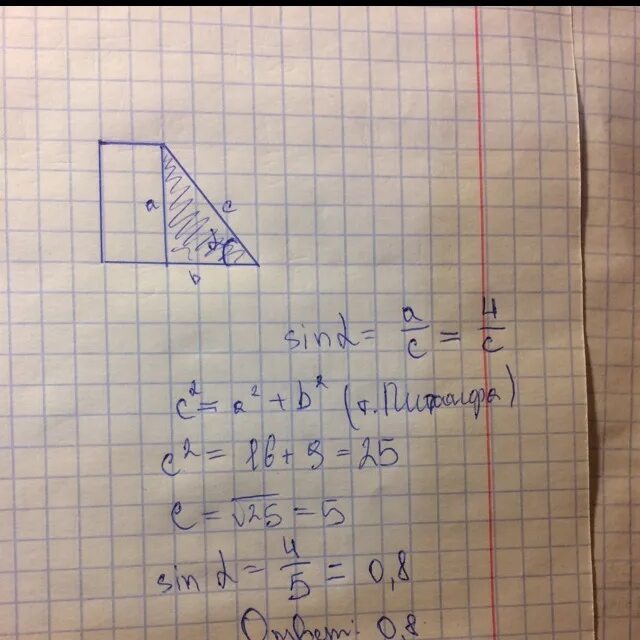 a
c
α
b
sin α = a/c = 4/c
c² = a² + b² (т. Пифагора)
c² = 16 + 9 = 25
c = √25 = 5
sin α = 4/5 = 0,8
Ответ: 0,8